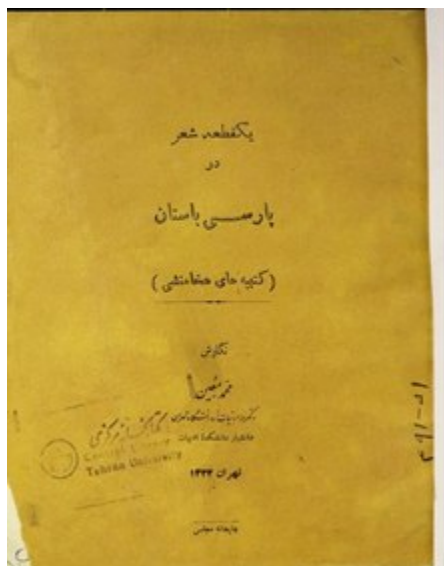 یکقطعه شعر
در
پارسی باستان
(کتیبه های هخامنشی)
نگارش
محمد معین
دکتر در ادبیات از دانشگاه تهران
دانشیار دانشکده ادبیات
کتابخانه مرکزی
Central Library
Tehran University
تهران ۱۳۲۲
چاپخانه مجلس